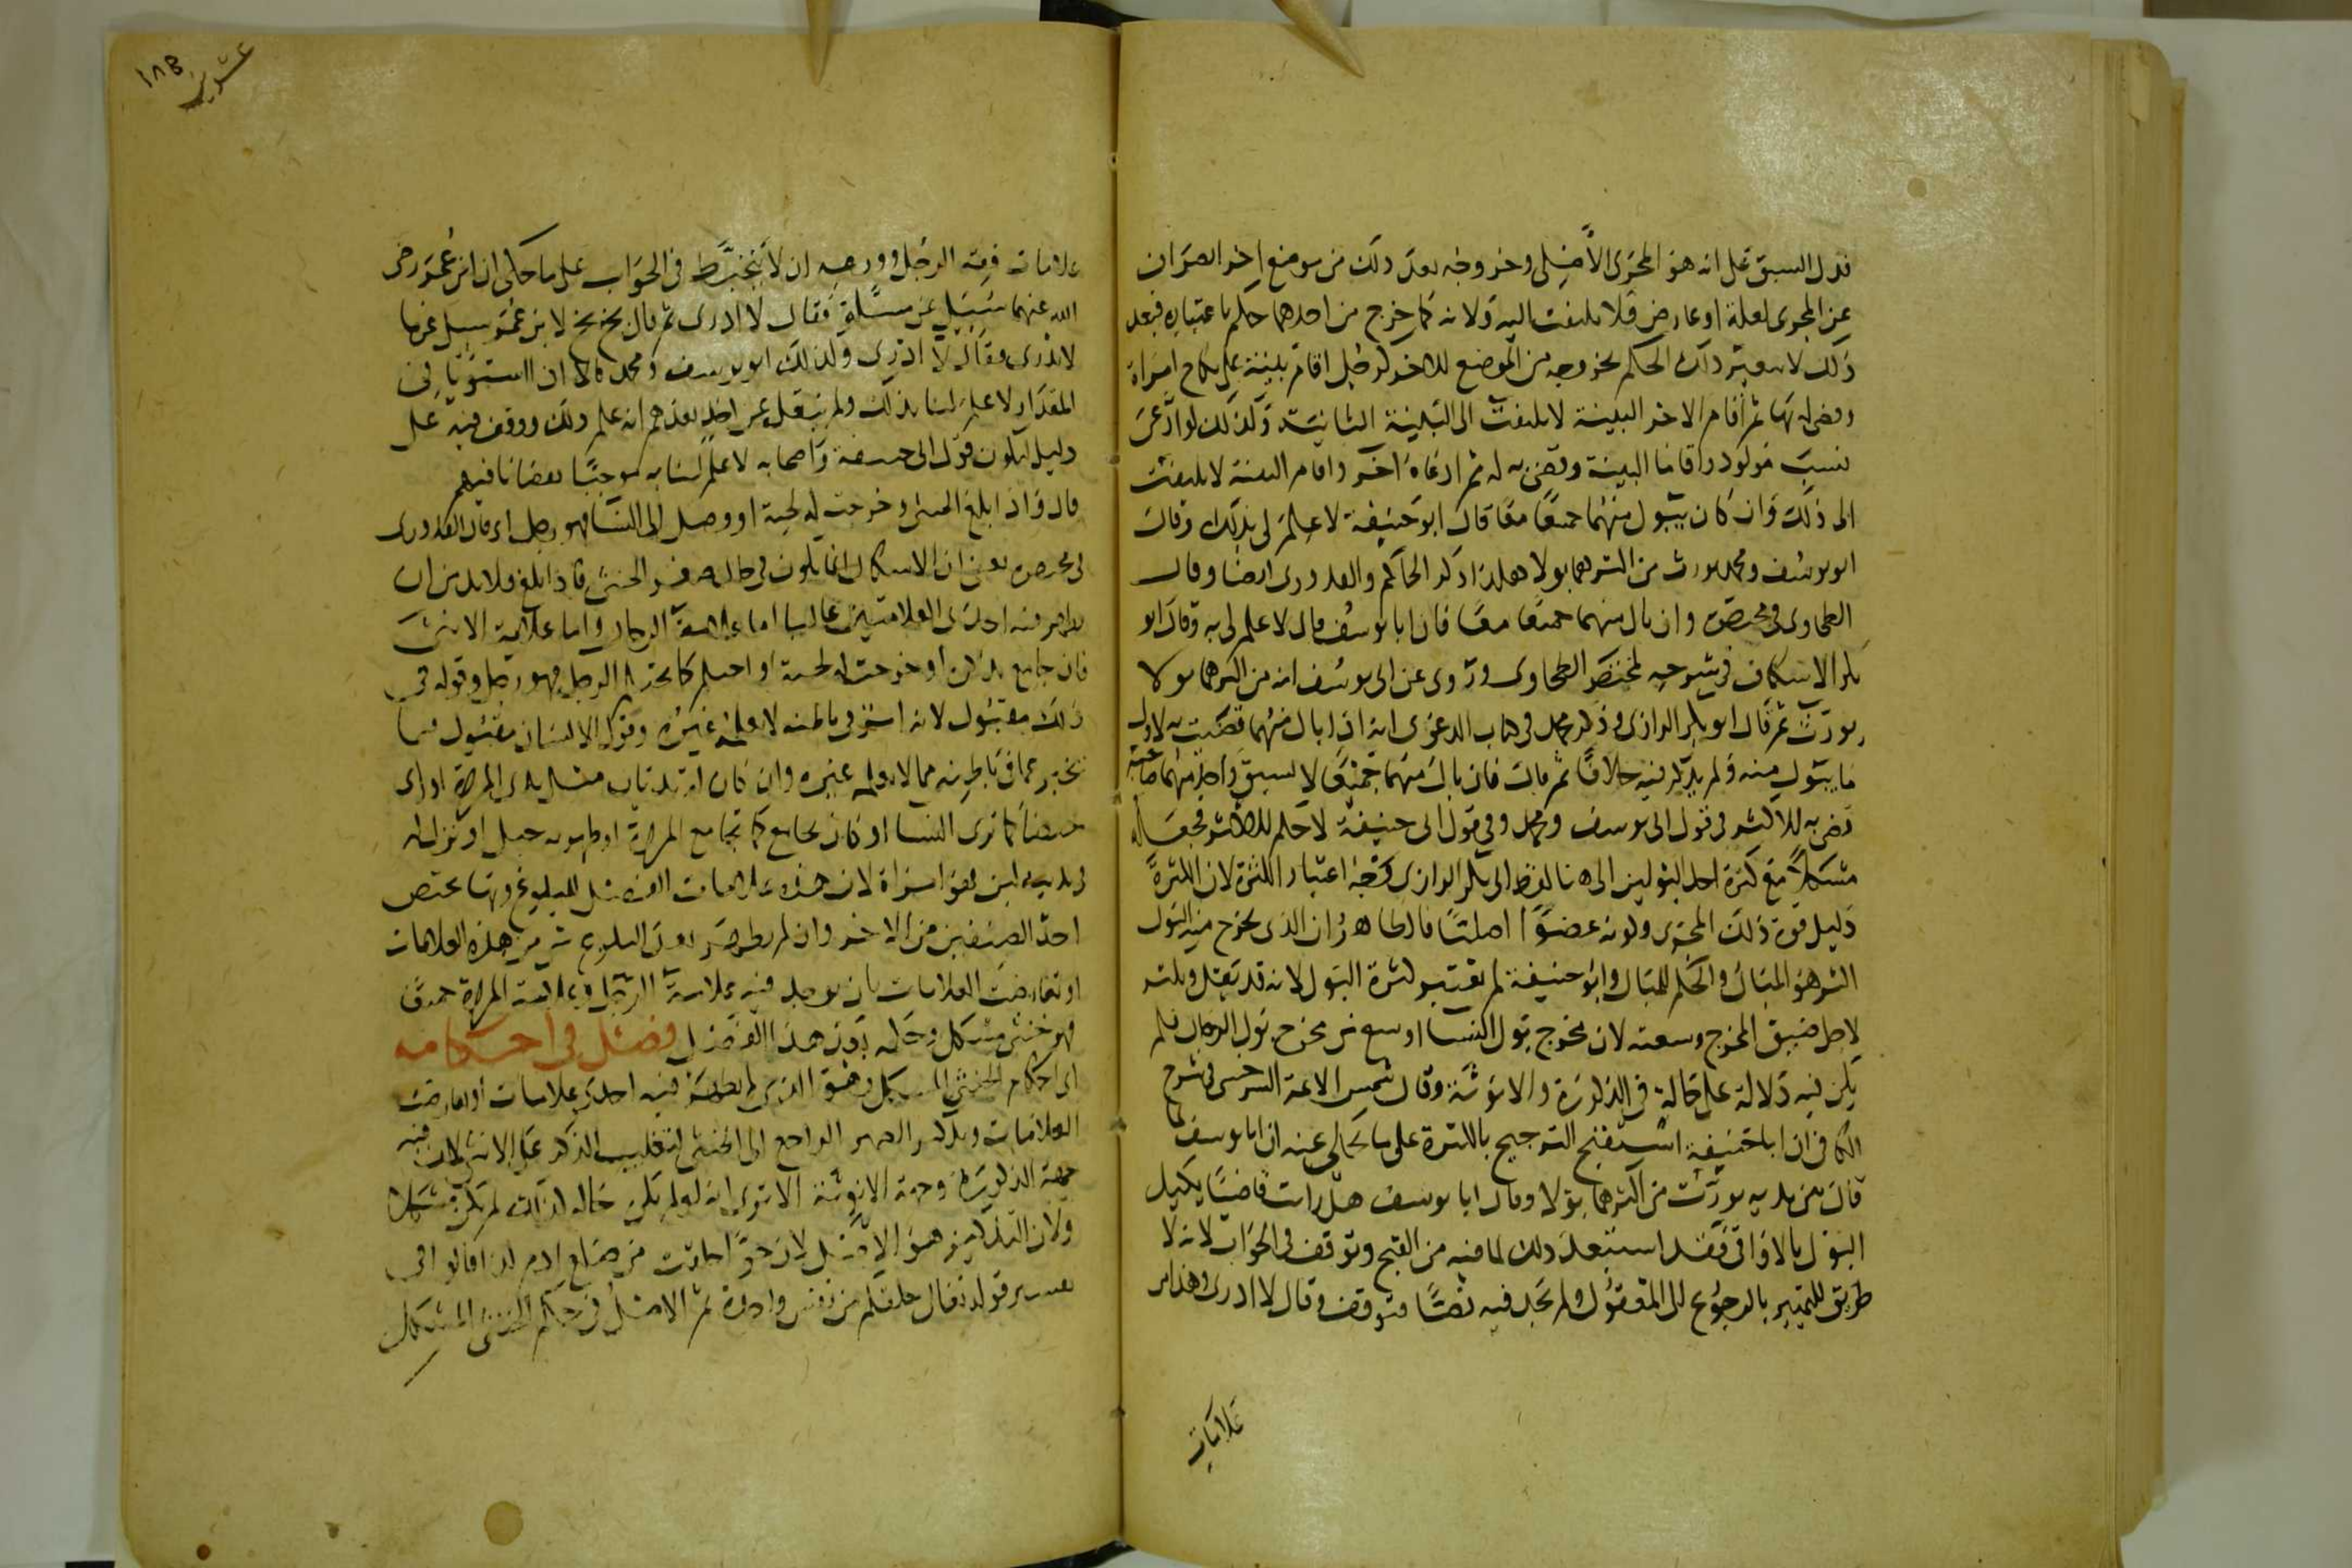 فدل السبق على انه هو المجرى الأصلي وخروجه بعد ذلك من موضع اخر انصراف
عن المجرى لعلة او عارض فلا يلتفت اليه ولانه كما خرج من احدهما حكم باعتباره فبعد
ذلك لا يتغير ذلك الحكم بخروجه من الموضع الاخر كرجل اقام بينة على نكاح امراة
وقضى له بها ثم أقام الاخر البينة لا يلتفت الى البينة الثانية وكذلك لو ادعى
نسب مولود واقاما البينة وقضى به له ثم ادعاه اخر واقام البينة لا يلتفت
الى ذلك وان كان يبول منهما جميعا معا قال ابو حنيفة لا علم لى بذلك وقال
ابو يوسف ومحمد يورث من اكثرهما بولا هكذا ذكر الحاكم والقدوري ايضا وقال
الطحاوى فى مختصره وان بال منهما جميعا معا فان ابا يوسف قال لا علم لى به وقال ابو
بكر الاسكاف فى شرحه لمختصر الطحاوى وروى عن ابى يوسف انه من اكثرهما بولا
يورث ثم قال ابو بكر الرازى وذكر محمد فى كتاب الدعوى انه اذا بال منهما قضيت به لاول
ما يبول منه ولم يذكر فيه خلافا ثم قال فان بال منهما جميعا لا يسبق واحد منهما صاحبه
قضى به للاكثر فى قول ابى يوسف ومحمد وفي قول ابى حنيفة لا حكم للاكثر فجعله
مشكلا مع كثرة احد البولين الى هنا لفظ ابى بكر الرازى وجه اعتبار الكثرة لان الكثرة
دليل قوة ذلك المجرى وكونه عضوا اصليا فالظاهر ان الذى يخرج منه البول
اكثر هو المبال والحكم للمبال وابو حنيفة لم يعتبر كثرة البول لانه قد يقل ويكثر
لاجل ضيق المخرج وسعته لان مخرج بول النسا اوسع من مخرج بول الرجال فلم
يكن فيه دلالة على حاله فى الذكورة والانوثة وقال شمس الائمة السرخسى فى شرح
الكافى ان ابا حنيفة استقبح الترجيح بالكثرة على ما يحكى عنه ان ابا يوسف لما
قال بين يديه يورث من اكثرهما بولا وقال ابا يوسف هل رايت قاضيا يكيل
البول بالاواقى فقد استبعد ذلك لما فيه من القبح وتوقف فى الجواب لانه لا
طريق للتمييز بالرجوع الى المعقول ولم يجد فيه نصا فتوقف وقال لا ادرى وهذا من
علامات
عشرين
١٨٥
علامات فقه الرجل وورعه ان لا يتخبط فى الجواب على ما حكى ان ابن عمر رضى
الله عنهما سئل عن مسئلة فقال لا ادرى ثم قال بخ بخ لابن عمر سئل عن ما
لا يدرى فقال لا ادرى وكذلك ابو يوسف ومحمد قالا ان استويا فى
المقدار لا علم لنا بذلك ولم ينقل عن احد بعدهم انه علم ذلك ووقف فيه على
دليل ليكون قول ابى حنيفة واصحابه لا علم لنا به موجبا نقصانا فيهم
قال واذا بلغ الخنثى وخرجت له لحية او وصل الى النسا فهو رجل اى قال القدورى
فى مختصره يعنى ان الاشكال انما يكون فى حال صغر الخنثى فاذا بلغ فلا بد من ان
يظهر فيه احدى العلامتين غالبا اما علامة الرجال واما علامة الانثى
فان جامع بذكره او خرجت له لحية او احتلم كما يحتلم الرجل فهو رجل وقوله فى
ذلك مقبول لانه امر فى باطنه لا يعلمه غيره وقول الانسان مقبول فيما
يخبر عما فى باطنه مما لا يعلمه غيره وان كان له ثديان مثل ثدى المرأة او راى
حيضا كما ترى النسا او كان يجامع كما تجامع المرأة او ظهر به حبل او نزل له
فى ثدييه لبن فهو امراة لان هذه علامات الفصل للبلوغ وبها يختص
احد الصنفين من الاخر وان لم يظهر بعد البلوغ شى من هذه العلامات
او تعارضت العلامات بان يوجد فيه علامة الرجل وعلامة المرأة جميعا
فهو خنثى مشكل وحاله دون هذا الفصل فصل فى احكامه
اى احكام الخنثى المشكل وهو الذى لم يظهر فيه احدى علامات او تعارضت
العلامات وتذكير الضمير الراجع الى الخنثى لتغليب الذكر على الانثى لان فيه
جهة الذكورة وجهة الانوثة الا ترى انه لو لم يكن حاله كذلك لم يكن مشكلا
ولان التذكير هو الاصل لان حوا خلقت من ضلع ادم كذا قالوا فى
تفسير قوله تعالى خلقكم من نفس واحدة ثم الاصل فى حكم الخنثى المشكل